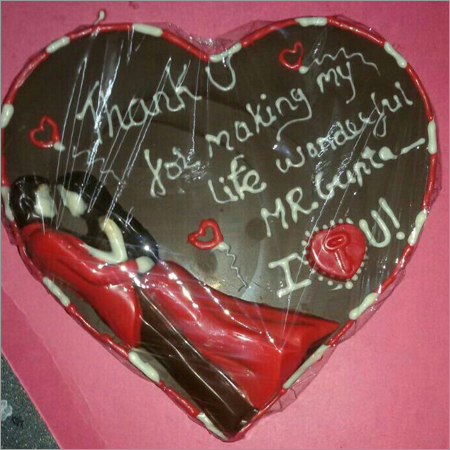 Thank U
for making my
life wonderful
MR. Gupta
I U!